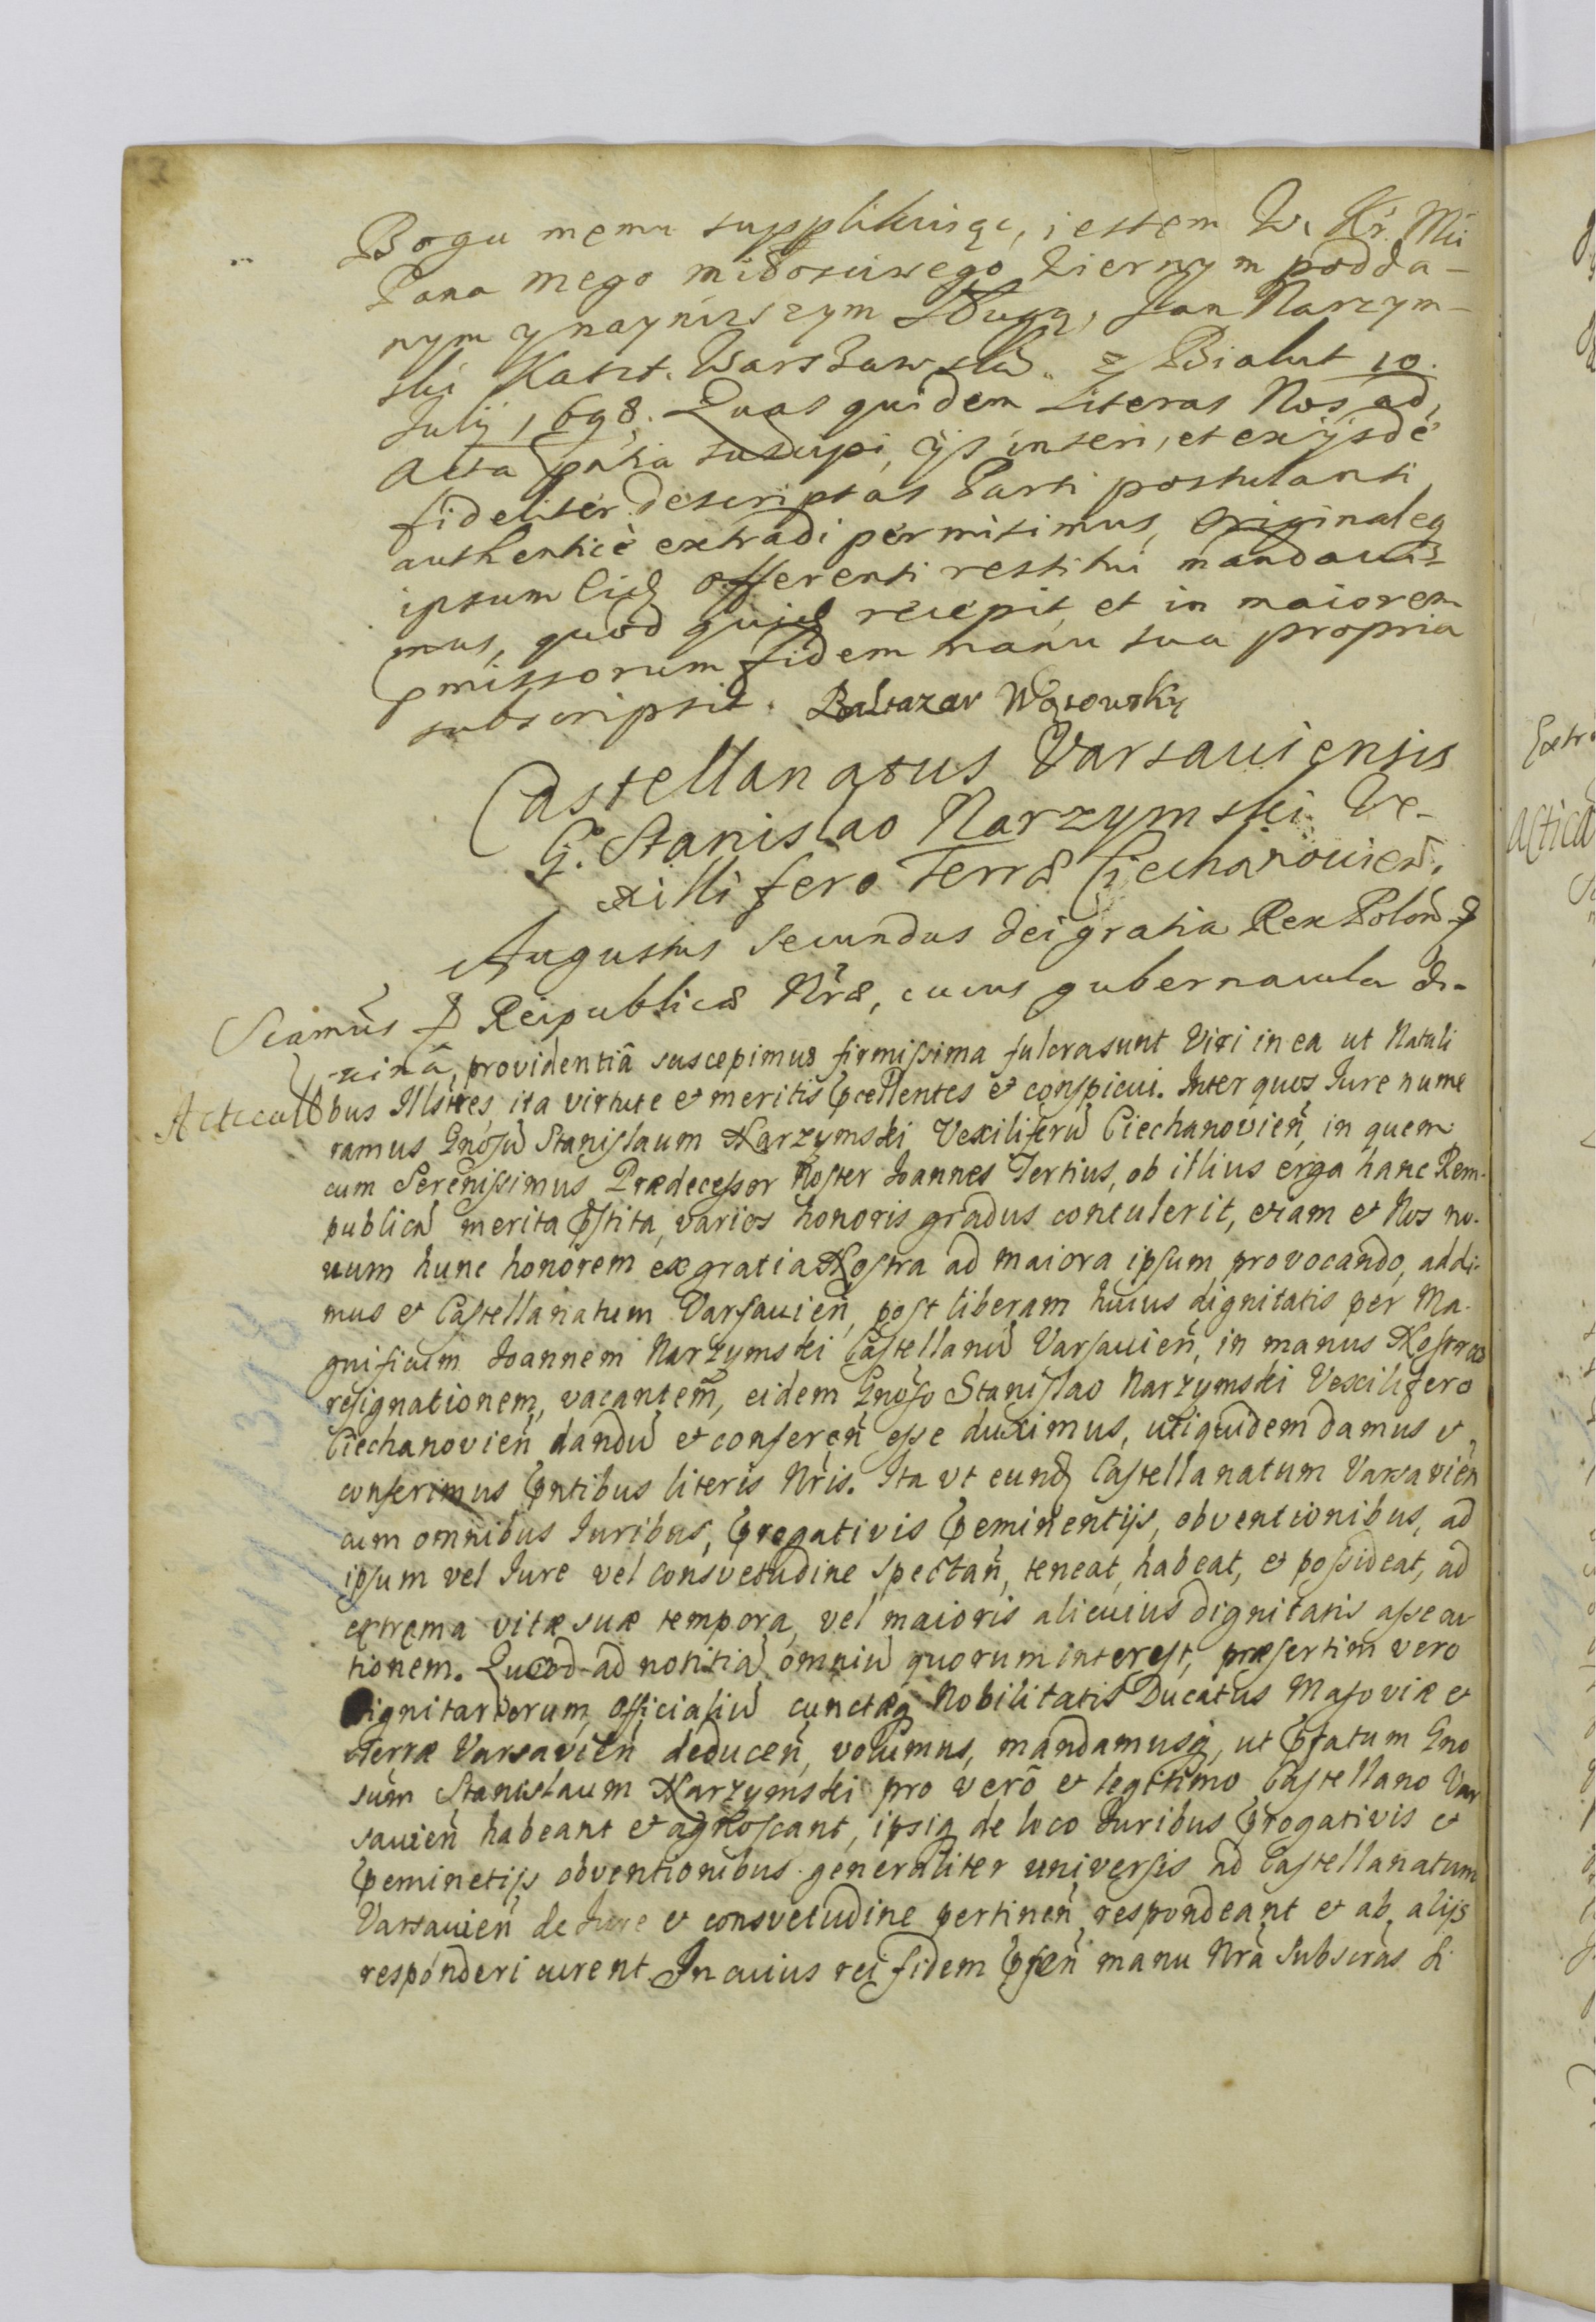 Bogu memu supplikuiąc, iestem W. Kr. Mći
Pana mego miłosciwego Wiernym podda-
nym y naynizszym sługą, Jan Narzym-
ski Kaszt. Warszawski. z Białut 10.
July 1698. Quas quidem Literas Nos ad
Acta pñtia suscipi, ijs inseri, et ex ijsdē
fideliter descriptas Parti postulanti
authenticè extradi permisimus, originaleq
ipsum eidē offerenti restitui mandaui-
mus, quod quidē recepit et in maiorem
pmissorum fidem manu sua propria
subscripsit. Baltazar Wąsowsky
Castellanatus Varsauiensis
G. Stanislao Narzymski Ve-
xillifero Terræ Ciechanouień.
Augustus Secundus dei gratia Rex Polon
Scamūs Reipublicæ Nræ, cuius gubernacula di-
uinâ, providentiâ suscepimus firmissima fulcra sunt Viri in ea ut Natali
Acticatō bus Illstres, ita virtute et meritis pcellentes et conspicui. Inter quos Iure nume
ramus Gnosū Stanislaum Narzymski Vexiliferū Ciechanovień, in quem
cum Serenissimus Prædecessor Noster Ioannes Tertius, ob illius erga hanc Rem-
publicā merita pstita, varios honoris gradus contulerit, etiam et Nos no-
uum hunc honorem ex gratia Nostra ad maiora ipsum provocando, addi-
mus et Castellanatum Varsauień, post liberam huius dignitatis per Ma-
gnificum Ioannem Narzymski Castellanū Varsauień, in manus Nostras
resignationem, vacantem, eidem Gnoso Stanislao Narzymski Vexilifero
Ciechanovień dandū et confereñ esse duximus, uti quidem damus et
conferimus pntibus literis Nris. Ita vt eundē Castellanatum Varsavień
cum omnibus Iuribus, progativis peminentijs, obventionibus, ad
ipsum vel Iure vel consvetudine spectañ, teneat, habeat, et possideat, ad
extrema vitæ suæ tempora, vel maioris alicuius dignitatis assecu
tionem. Quod ad notitiā omniū quorum interest, præsertim vero
Dignitariorum, Officialiū cunctæq Nobilitatis Ducatus Masoviæ et
Terræ Varsavień deduceñ, volumus, mandamusq, ut pfatum Gno
sum Stanislaum Narzymski pro verô et legitimo Castellano Var
sauień habeant et agnoscant, ipsiq de loco Iuribus progativis et
peminetijs obventionibus generaliter universis ad Castellanatum
Varsauień de Iure et consvetudine pertineñ respondeant et ab alijs
responderi curent. In cuius rei fidem pseñ manu Nrâ subscras Si